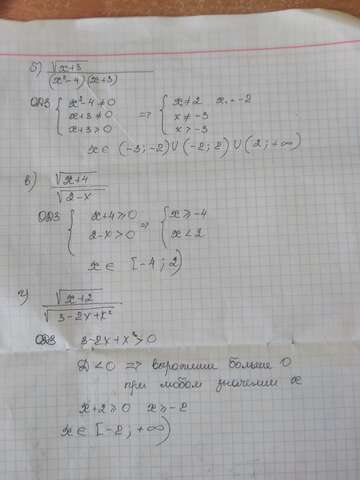 б) √x+3 / (x²-4)(x+3)
ОДЗ { x²-4≠0 => { x≠2 x≠-2
x+3≠0 x≠-3
x+3>0 x>-3
x∈ (-3;-2)∪(-2;2)∪(2;+∞)
в) √x+4 / √2-x
ОДЗ { x+4≥0 => { x≥-4
2-x>0 x<2
x∈ [-4;2)
г) √x+2 / √3-2x+x²
ОДЗ 3-2x+x²>0
D<0 => выражение больше 0
при любом значении x
x+2≥0 x≥-2
x∈[-2;+∞)